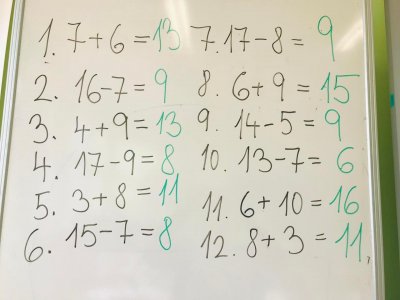 1. 7+6=13
2. 16-7=9
3. 4+9=13
4. 17-9=8
5. 3+8=11
6. 15-7=8
7. 17-8=9
8. 6+9=15
9. 14-5=9
10. 13-7=6
11. 6+10=16
12. 8+3=11